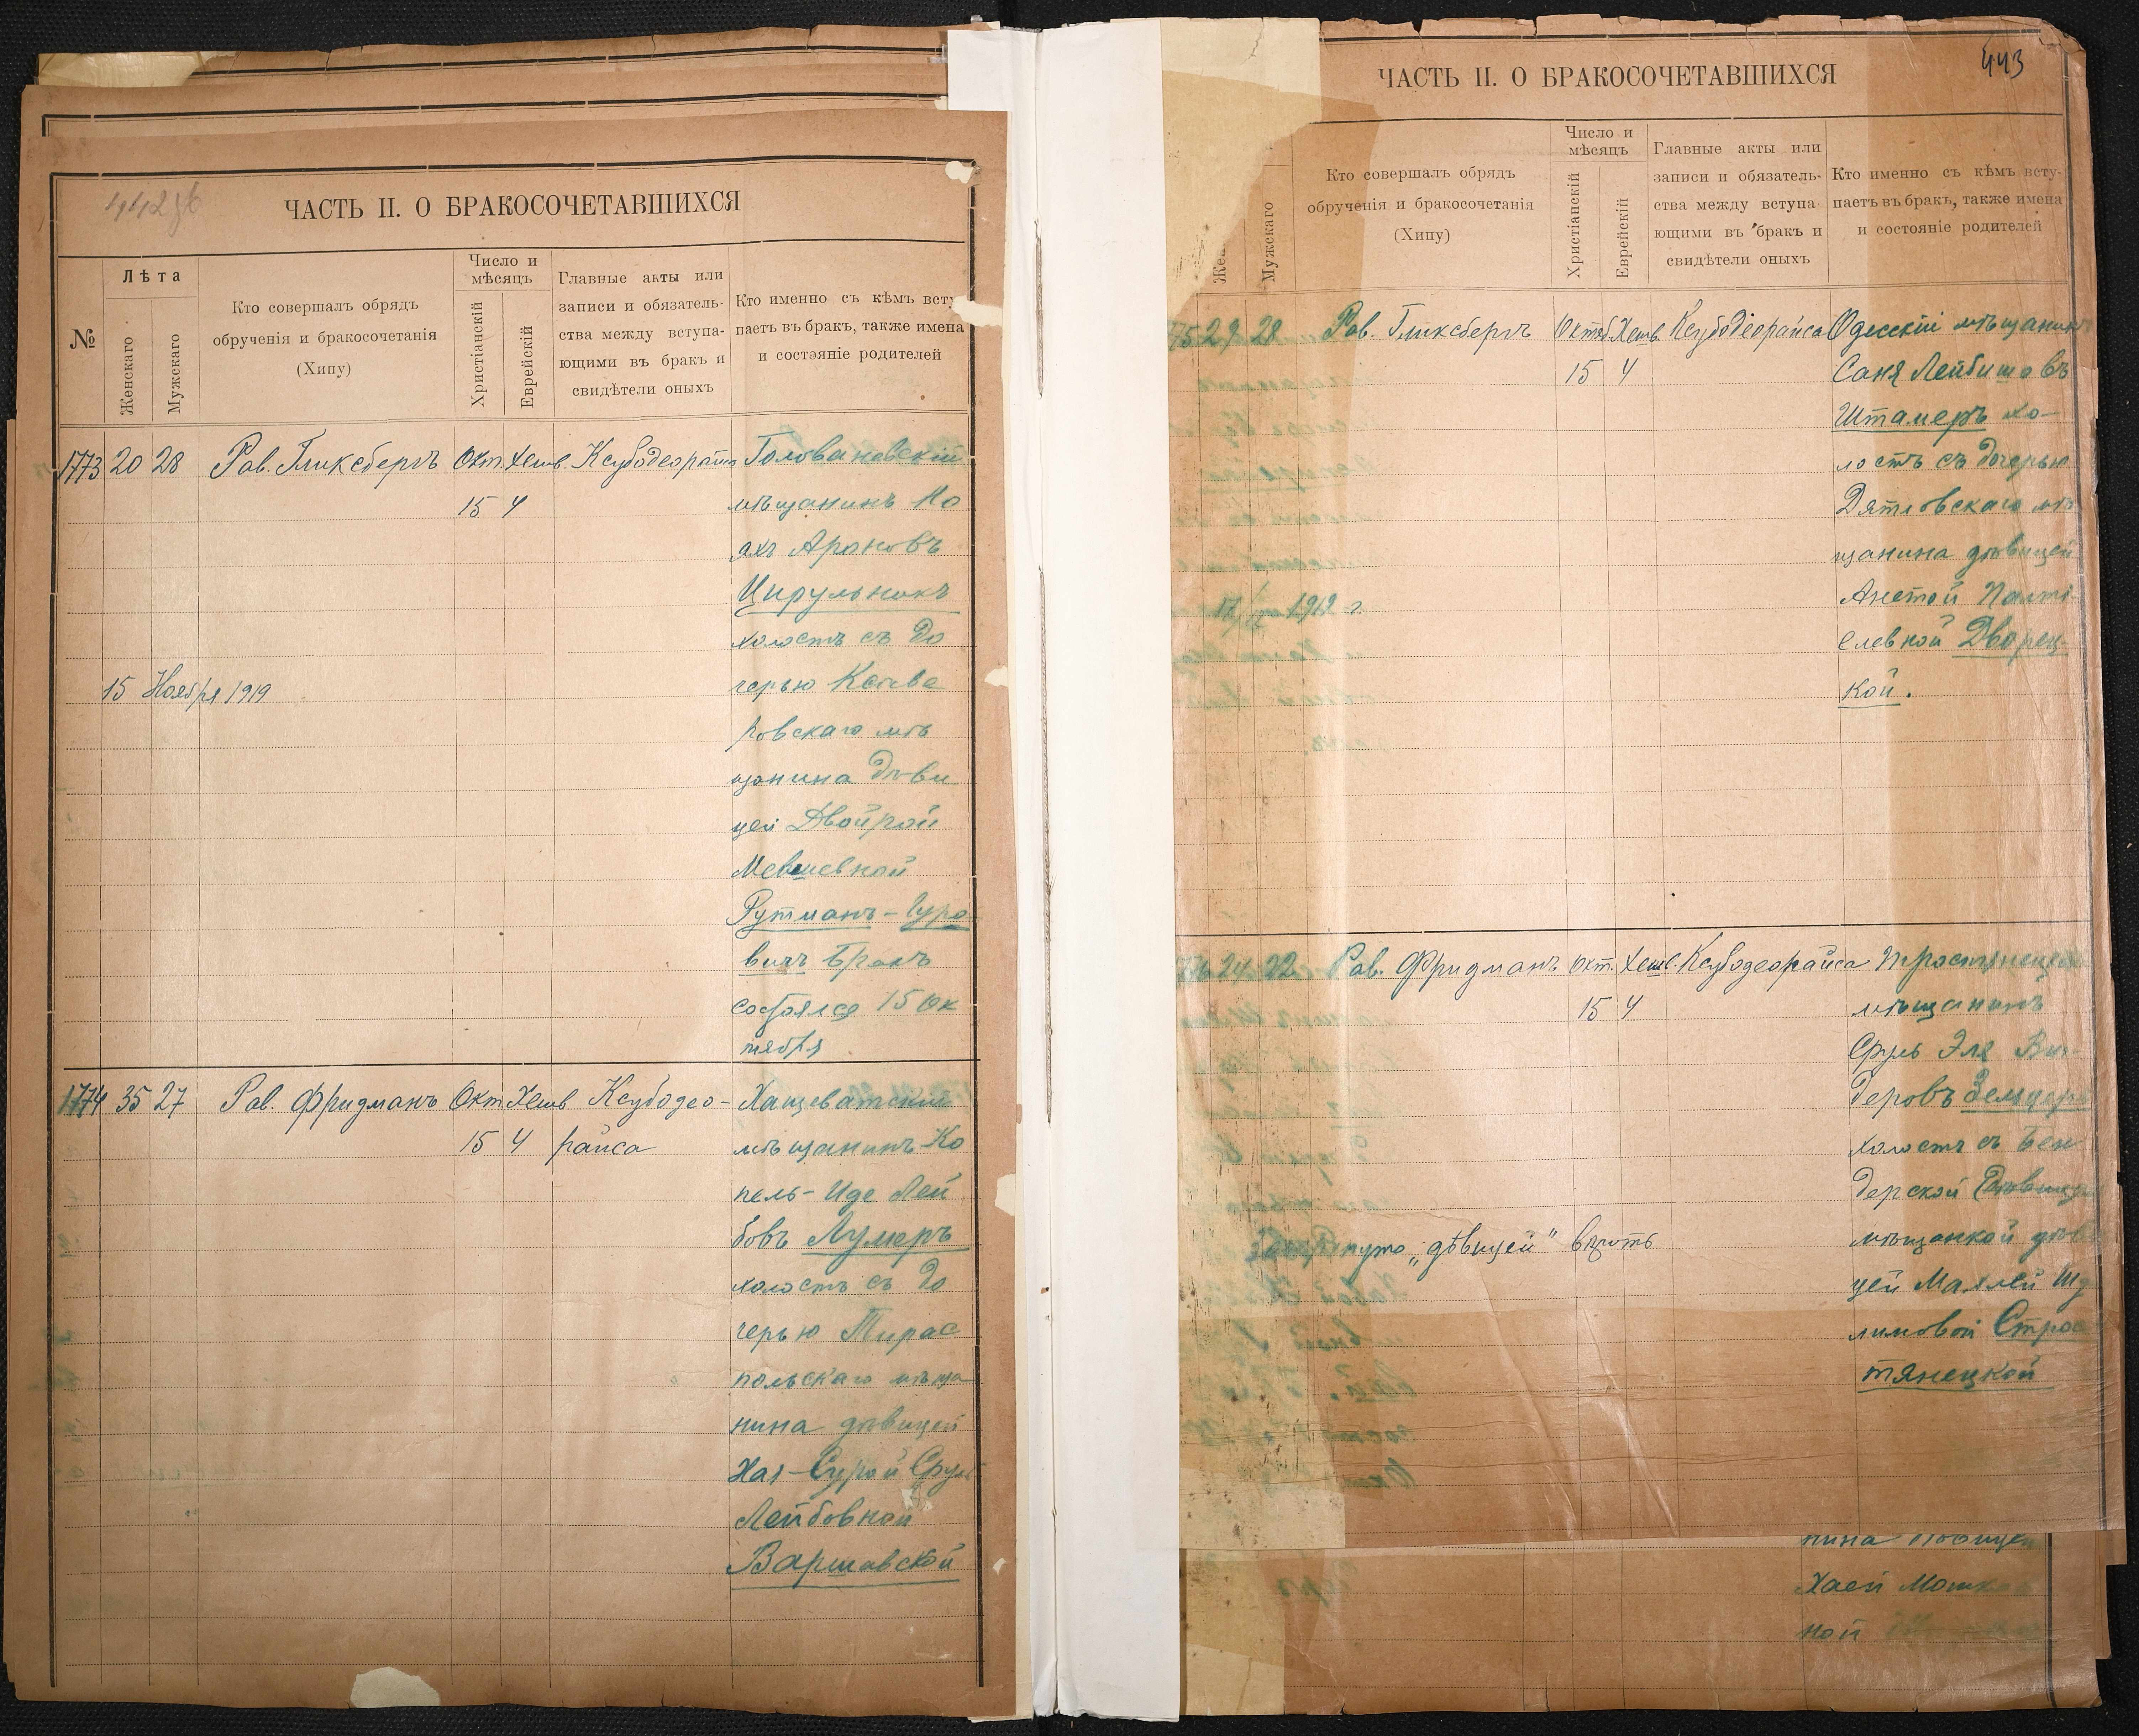 442 об
ЧАСТЬ II. О БРАКОСОЧЕТАВШИХСЯ
№
Лѣта
Женскаго
Мужскаго
Кто совершалъ обрядъ
обрученія и бракосочетанія
(Хипу)
Число и
мѣсяцъ
Христіанскій
Еврейскій
Главные акты или
записи и обязатель-
ства между вступа-
ющими въ бракъ и
свидѣтели оныхъ
Кто именно съ кѣмъ всту
паетъ въ бракъ, также имена
и состояніе родителей
1773 20 28 Рав. Гликсбергъ Окт. Хешв. Ксубодеорайса Голованевскій
15 4 мѣщанинъ Но
ахъ Ароновъ
Цирульникъ
холостъ съ до
15 Ноября 1919 черью
ровскаго мѣ
щанина дѣви
цей Двойрой
Мевшевной
Рутманъ-Гуро
вичъ Бракъ
состоялся 15 Ок
тября
1774 35 27 Рав. Фридманъ Окт Хешв Ксубодео- Хащеватскій
15 4 райса мѣщанинъ Ко
пель-Иде Лей
бовъ Лумеръ
холостъ съ до
черью Тирас
польскаго мѣща
нина дѣвицей
Хая-Сурой Сруль
Лейбовной
Варшавской
443
ЧАСТЬ II. О БРАКОСОЧЕТАВШИХСЯ
Мужскаго
Кто совершалъ обрядъ
обрученія и бракосочетанія
(Хипу)
Число и
мѣсяцъ
Христіанскій
Еврейскій
Главные акты или
записи и обязатель-
ства между вступа-
ющими въ бракъ и
свидѣтели оныхъ
Кто именно съ кѣмъ всту-
паетъ въ бракъ, также имена
и состояніе родителей
75 29 28 Рав. Гликсбергъ Октяб. Хешв. Ксубодіорайса Одесскій мѣщанинъ
15 4 Саня Лейбишовъ
Штамеръ хо-
лостъ съ дочерью
Дятловскаго мѣ
щанина дѣвицей
1919 г. Анетой Палті-
елевной Дворец-
кой.
76 24 22 Рав. Фридманъ Окт. Хешв. Ксубодеорайса Тростянецкій
15 4 мѣщанинъ
Сруль Эля
деровъ Земцеръ
холостъ съ Бен
дерской
Зачеркнуто „дѣвицей" вѣрить мѣщанкой дѣви
цей Маллей Шу
лимовой Строс
тянецкой
нина дѣвицей
Хаей Мошков
ной